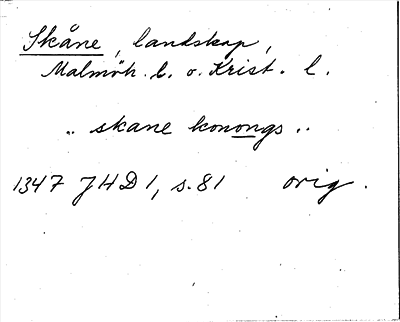 Skåne, landskap,
Malmöh. l. o. Krist. l.
.. skane konongs ..
1347 JHD 1, s. 81 orig.